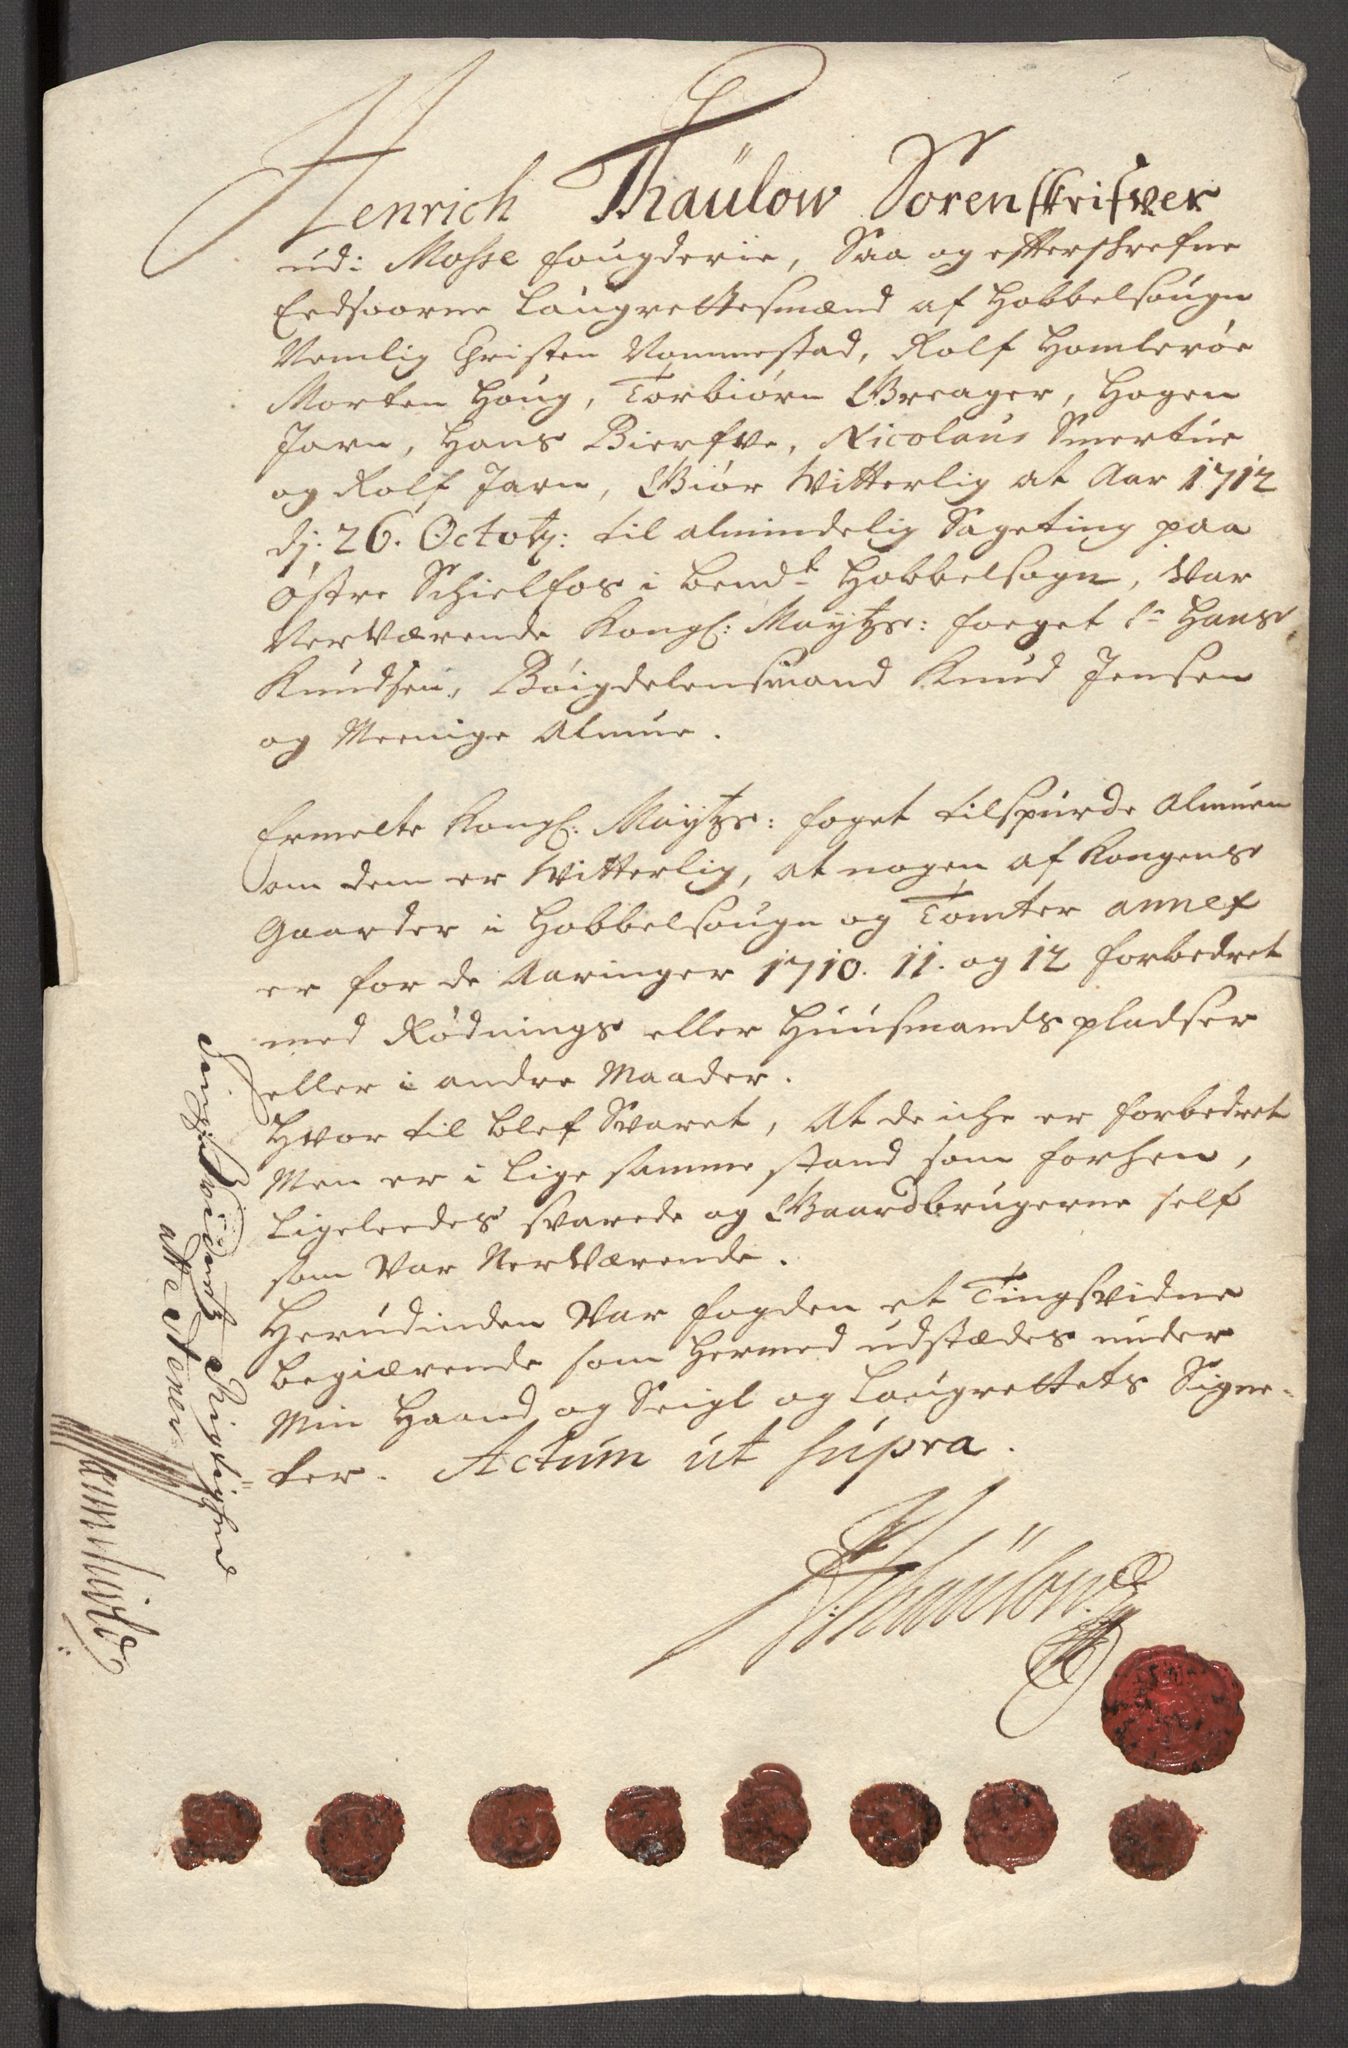 Henrich Thaülow Sorenskrifver
ud: Mosse fougderie, Saa og effterskrefne
Eedsvorne Laugrettesmænd af Hobbelsougn
Nemlig Christen Nommestad, Rolf Homlerøe
Morten Houg, Torbiørn Greager, Hagen
Jarn, Hans Bierfve, Nicolaus Smertue
og Rolf Jarn, Giør Witterlig at Aar 1712
dj: 26. Octobr: til almindelig Sageting paa
Østre Schielfos i bemte Hobbelsogn, War
Nerværende Kongl: Maytzs: foeget Sr Hans
Knudsen, Bøigdelensmand Knud Jensen
og Meenige Almue.
Ermelte Kongl: Maytzs: foget tilspurde Almuen
om dem er Witterlig, at nogen af Kongens
Gaarder i Hobbelsougn og Tomter annex
er for de Aaringer 1710. 11. og 12 forbedret
med Rødnings eller Huusmands pladser
eller i andre Maader.
Hvor til blef Svaret, At de iche er forbedret
Men er i lige samme stand som forhen,
Ligeleedes svarede og Gaardbrugerne self
som Var Nerværende.
Herudinden Var fogden et Tingsvidne
begiærende som hermed udstædes under
Min Haand og Seigl og Laugrettets Signe-
ter. Actum ut supra.
HThaülow
Rigtighed
attesterer